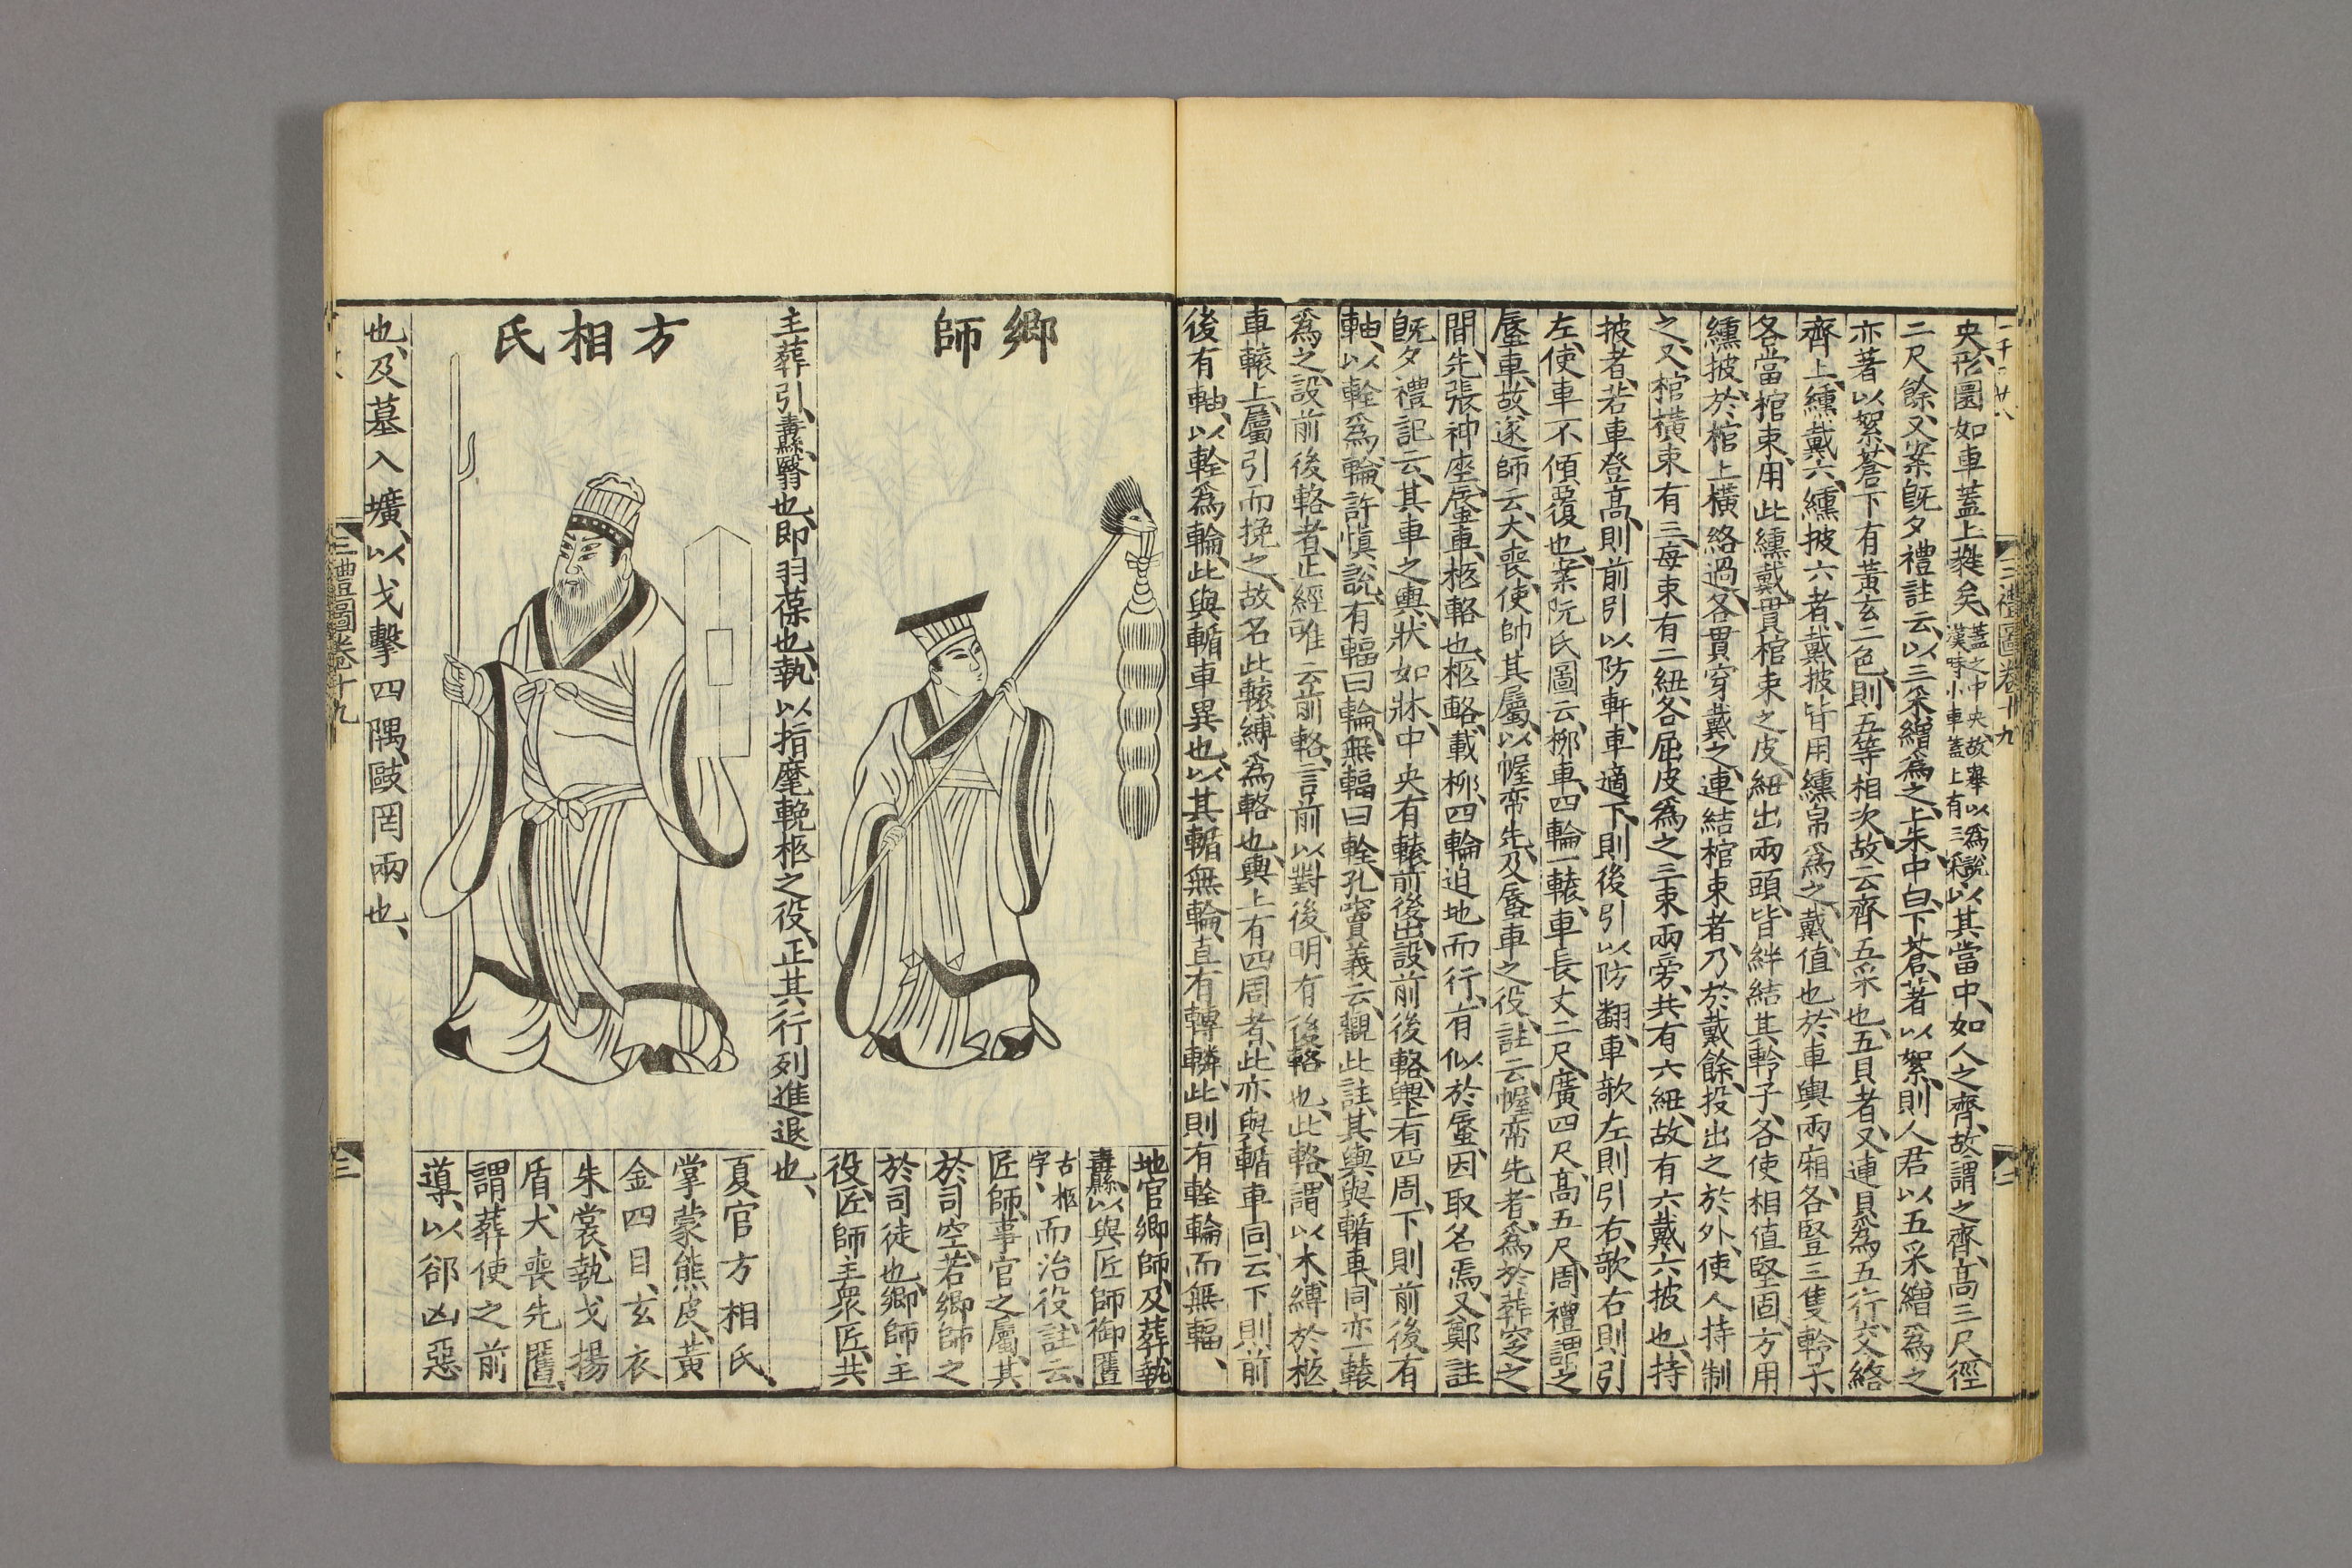 央形圜如車蓋上蕤矣蓋之中央故舉以爲說漢時小車蓋上有三采以其當中如人之齊故謂之齊高三尺徑
二尺餘又案旣夕禮註云以三采繒爲之上朱中白下蒼著以絮則人君以五采繒爲之
亦著以絮蒼下有黃玄二色則五等相次故云齊五采也五貝者又連貝爲五行交絡
齊上纁戴六纁披六者戴披皆用纁帛爲之戴值也於車輿兩廂各豎三隻軨子
各當棺束用此纁戴貫棺束之皮紐出兩頭皆絆結其軨子各使相值堅固方用
纁披於棺上橫絡過各貫穿戴之連結棺束者乃於戴餘投出之於外使人持制
之又棺橫束有三每束有二紐各屈皮爲之三束兩旁共有六紐故有六戴六披也持
披者若車登高則前引以防軒車適下則後引以防翻車欹左則引右欹右則引
左使車不傾覆也案阮氏圖云柳車四輪一轅車長丈二尺廣四尺高五尺周禮謂之
蜃車故遂師云大喪使帥其屬以幄帟先及蜃車之役註云幄帟先者爲於葬窆之
間先張神座蜃車柩輅也柩輅載柳四輪迫地而行有似於蜃因取名焉又鄭註
旣夕禮記云其車之轝狀如牀中央有轅前後出設前後輅轝上有四周下則前後有
軸以輇爲輪許慎說有輻曰輪無輻曰輇孔賈義云觀此註其輿與輴車同亦一轅
爲之設前後輅者正經唯云前輅言前以對後明有後輅也此輅謂以木縛於柩
車轅上屬引而挽之故名此轅縛爲輅也輿上有四周者此亦與輴車同云下則前
後有軸以輇爲輪此與輴車異也以其輴無輪直有轉轔此則有輇輪而無輻
三禮圖卷十九
二
鄉師
地官鄉師及葬執
纛以與匠師御匶
古柩字而治役註云
匠師事官之屬其
於司空若鄉師之
於司徒也鄉師主
役匠師主衆匠共
主葬引纛翳也即羽葆也執以指麾輓柩之役正其行列進退也
方相氏
夏官方相氏
掌蒙熊皮黃
金四目玄衣
朱裳執戈揚
盾大喪先匶
謂葬使之前
導以郤凶惡
也及墓入壙以戈擊四隅敺罔兩也
三禮圖卷十九
三